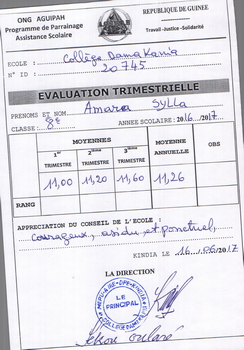 ONG AGUIPAH
REPUBLIQUE DE GUINEE
Programme de Parrainage
Assistance Scolaire
Travail -Justice -Solidarité
ECOLE : Collège Damakania
N° ID : 20745
EVALUATION TRIMESTRIELLE
PRENOMS ET NOM : Amara Sylla
CLASSE : 8è ANNEE SCOLAIRE : 2016 /2017
MOYENNES
1er TRIMESTRE 2ème TRIMESTRE 3ème TRIMESTRE MOYENNE ANNUELLE OBS
11,00 11,20 11,60 11,26
RANG
APPRECIATION DU CONSEIL DE L'ECOLE :
Courageux, assidu et ponctuel,
KINDIA LE 16 /06 /2017
LA DIRECTION
LE PRINCIPAL